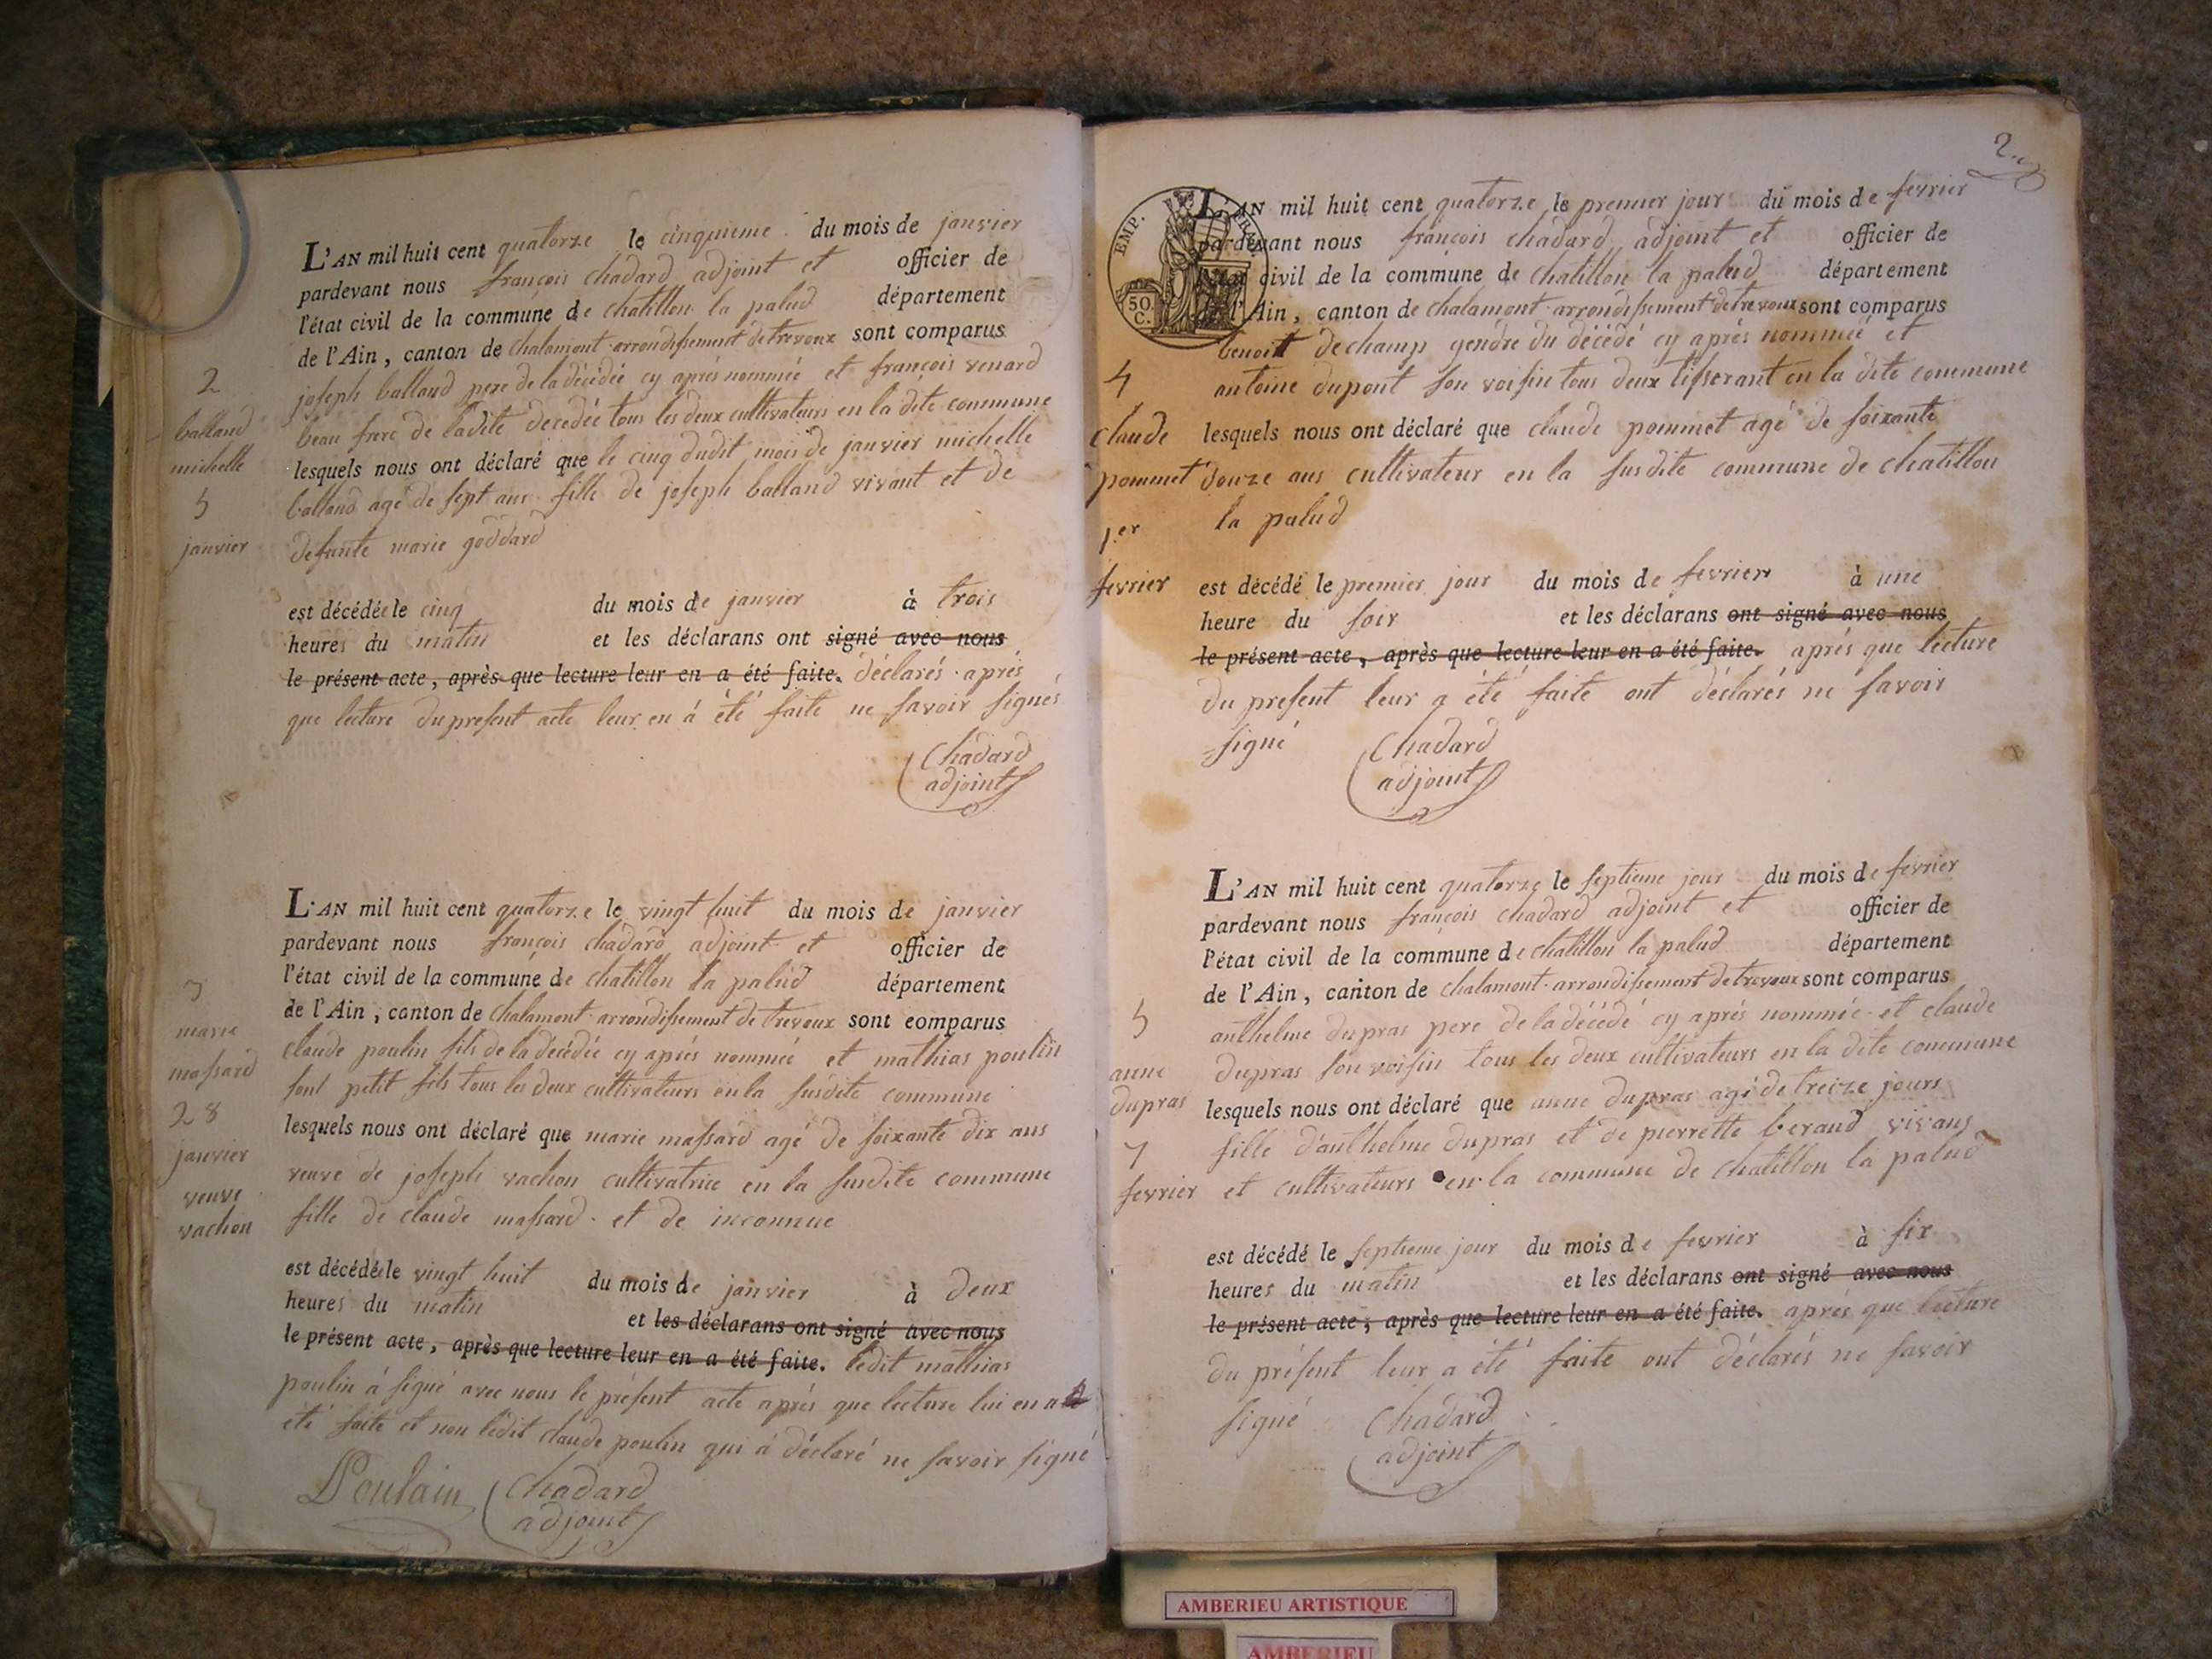 2
balland
michelle
5
janvier
L'AN mil huit cent quatorze le cinquieme du mois de janvier
pardevant nous françois chadard adjoint et officier de
l'état civil de la commune de chatillon la palud département
de l'Ain, canton de Chalamont arrondissement de trevoux sont comparus
joseph balland pere de la décédée cy aprés nommée et françois venard
beau frere de ladite decedée tous les deux cultivateurs en la dite commune
lesquels nous ont déclaré que le cinq dudit mois de janvier michelle
balland agé de sept ans fille de joseph balland vivant et de
defunte marie goddard
est décédée le cinq du mois de janvier à trois
heures du matin et les déclarans ont signé avec nous
le présent acte, après que lecture leur en a été faite. déclarés aprés
que lecture du present acte leur en á été faite ne savoir signés
Chadard
adjoint
3
marie
massard
28
janvier
veuve
vachon
L'AN mil huit cent quatorze le vingt huit du mois de janvier
pardevant nous françois chadard adjoint et officier de
l'état civil de la commune de chatillon la palud département
de l'Ain, canton de Chalamont arrondissement de trevoux sont comparus
claude poulin fils de la décédée cy aprés nommée et mathias poulin
sont petit fils tous les deux cultivateurs en la susdite commune
lesquels nous ont déclaré que marie massard agé de soixante dix ans
veuve de joseph vachon cultivatrice en la susdite commune
fille de claude massard et de inconnue
est décédée le vingt huit du mois de janvier à deux
heures du matin et les déclarans ont signé avec nous
le présent acte, après que lecture leur en a été faite. ledit mathias
poulin á signé avec nous le présent acte aprés que lecture lui en a
été faite et non ledit claude poulin qui á déclaré ne savoir signé
Poulain Chadard
adjoint
2
EMP.
50
C.
4
claude
pommet
1er
fevrier
L'AN mil huit cent quatorze le premier jour du mois de fevrier
pardevant nous françois chadard adjoint et officier de
l'état civil de la commune de chatillon la palud département
de l'Ain, canton de chalamont arrondissement de trevoux sont comparus
benoit dechamp gendre du décédé cy aprés nommeé et
antoine dupont son voisin tous deux tisserant en la dite commune
lesquels nous ont déclaré que claude pommet agé de soixante
douze ans cultivateur en la susdite commune de chatillon
la palud
est décédé le premier jour du mois de fevrier à une
heure du soir et les déclarans ont signé avec nous
le présent acte, après que lecture leur en a été faite. aprés que lecture
du present leur a été faite ont déclarés ne savoir
signé Chadard
adjoint
5
anne
dupras
7
fevrier
L'AN mil huit cent quatorze le septieme jour du mois de fevrier
pardevant nous françois chadard adjoint et officier de
l'état civil de la commune de chatillon la palud département
de l'Ain, canton de chalamont arrondissement de trevoux sont comparus
anthelme dupras pere de la décédé cy aprés nommée et claude
dupras son voisin tous les deux cultivateurs en la dite commune
lesquels nous ont déclaré que anne dupras agé de treize jours
fille d'anthelme dupras et de pierrette beraud vivans
et cultivateurs en la commune de chatillon la palud
est décédé le septieme jour du mois de fevrier à six
heures du matin et les déclarans ont signé avec nous
le présent acte, après que lecture leur en a été faite. aprés que lecture
du présent leur a été faite ont déclarés ne savoir
signé Chadard
adjoint
AMBERIEU ARTISTIQUE
AMBERIEU